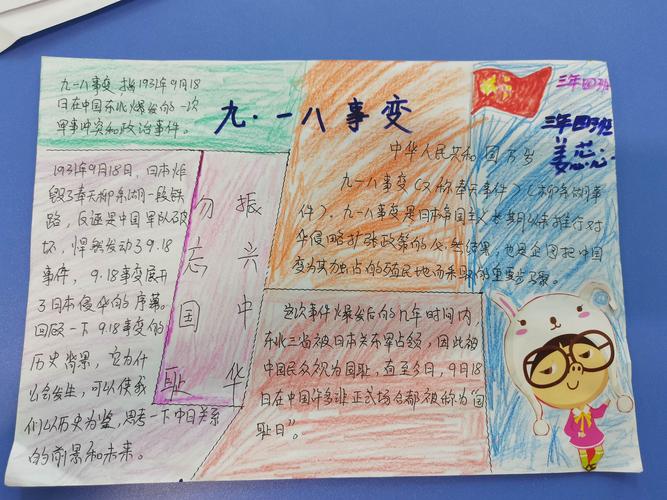 九·一八事变
三年四班
三年四班
姜蕊
九一八事变,指1931年9月18
日在中国东北爆发的一次
军事冲突和政治事件。
1931年9月18日,日本炸
毁了奉天柳条湖一段铁
路,反诬是中国军队破
坏,悍然发动了9.18
事件,9.18事变展开
了日本侵华的序幕。
回顾一下9.18事变的
历史背景,它为什
么会发生,可以使我
们以历史为鉴,思考一下中日关系
的前景和未来。
振兴中华
勿忘国耻
中华人民共和国万岁
九一八事变(又称奉天事件)(柳条湖事
件)。九一八事变是日本帝国主义长期以来推行对
华侵略扩张政策的必然结果,也是企图把中国
变为其独占的殖民地而采取的重要步骤。
这次事件爆发后的几年时间内,
东北三省被日本关东军占领,因此被
中国民众视为国耻,直至今日,9月18
日在中国许多非正式场合都被称为"国
耻日"。